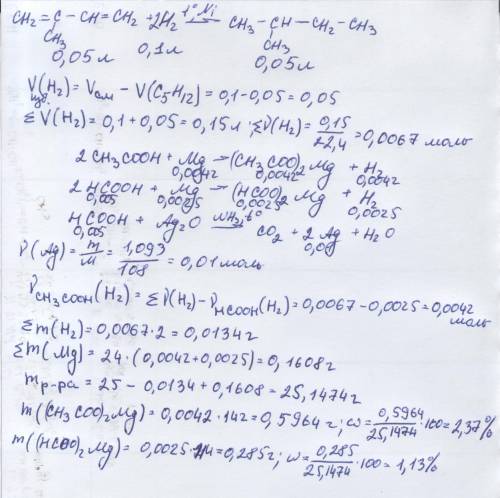 CH₂=C-CH=CH₂ +2H₂ t°,Ni CH₃-CH-CH₂-CH₃
CH₃ CH₃
0,05л 0,1л 0,05л
V(H₂)изб. = Vсм - V(C₅H₁₂) = 0,1-0,05 = 0,05
ΣV(H₂) = 0,1+0,05 = 0,15л · Σν(H₂) = 0,15/22,4 = 0,0067 моль
2CH₃COOH + Mg → (CH₃COO)₂Mg + H₂
0,0042 0,0042 0,0042
2HCOOH + Mg → (HCOO)₂Mg + H₂
0,005 0,0025 0,0025 0,0025
HCOOH + Ag₂O NH₃,t° CO₂ + 2Ag + H₂O
0,005 0,01
ν(Ag) = m/M = 1,093/108 = 0,01 моль
νCH₃COOH(H₂) = Σν(H₂) - νHCOOH(H₂) = 0,0067-0,0025 = 0,0042
моль
Σm(H₂) = 0,0067·2 = 0,0134г
Σm(Mg) = 24·(0,0042+0,0025) = 0,1608г
mр-ра = 25-0,0134+0,1608 = 25,1474г
m((CH₃COO)₂Mg) = 0,0042·142 = 0,5964г; ω = 0,5964/25,1474·100 = 2,37%
m((HCOO)₂Mg) = 0,0025·114 = 0,285г; ω = 0,285/25,1474·100 = 1,13%